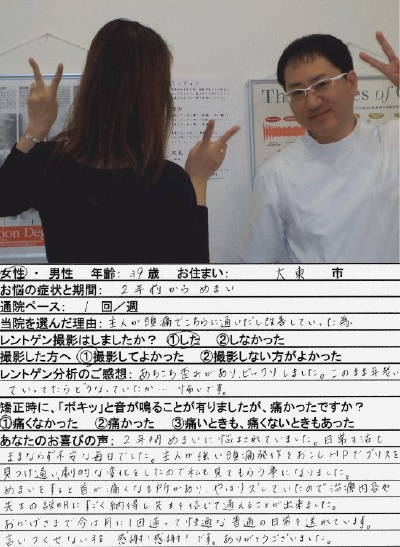 The
es of
tion De
女性・ 男性 年齢: 39 歳 お住まい: 大東 市
お悩の症状と期間: 2年前から めまい
通院ペース: 1 回/週
当院を選んだ理由: 主人が頭痛でこちらに通いだし改善していった為
レントゲン撮影はしましたか? ①した ②しなかった
撮影した方へ ①撮影してよかった ②撮影しない方がよかった
レントゲン分析のご感想: あちこち歪みがあり、ビックリしました。このまま年老い
ていってたらどうなっていたか… 怖いです。
矯正時に、「ボキッ」と音が鳴ることが有りましたが、痛かったですか?
①痛くなかった ②痛かった ③痛いときも、痛くないときもあった
あなたのお喜びの声: 2年間めまいに悩まされていました。日常生活も
ままならず不安な毎日でした。主人が強い頭痛発作をおこしHPで
見つけ通い劇的な変化をしたので私も見てもらう事になりました。
めまいをすると首が痛くなる所があり、やはりズレていたので治療内容や
先生の説明にすごく納得し先生を信じて通えることが出来ました。
おかげさまで今は月に1回通って快適な普通の日常を送れています。
言いつくせない程 感謝!感謝!です。ありがとうございました。